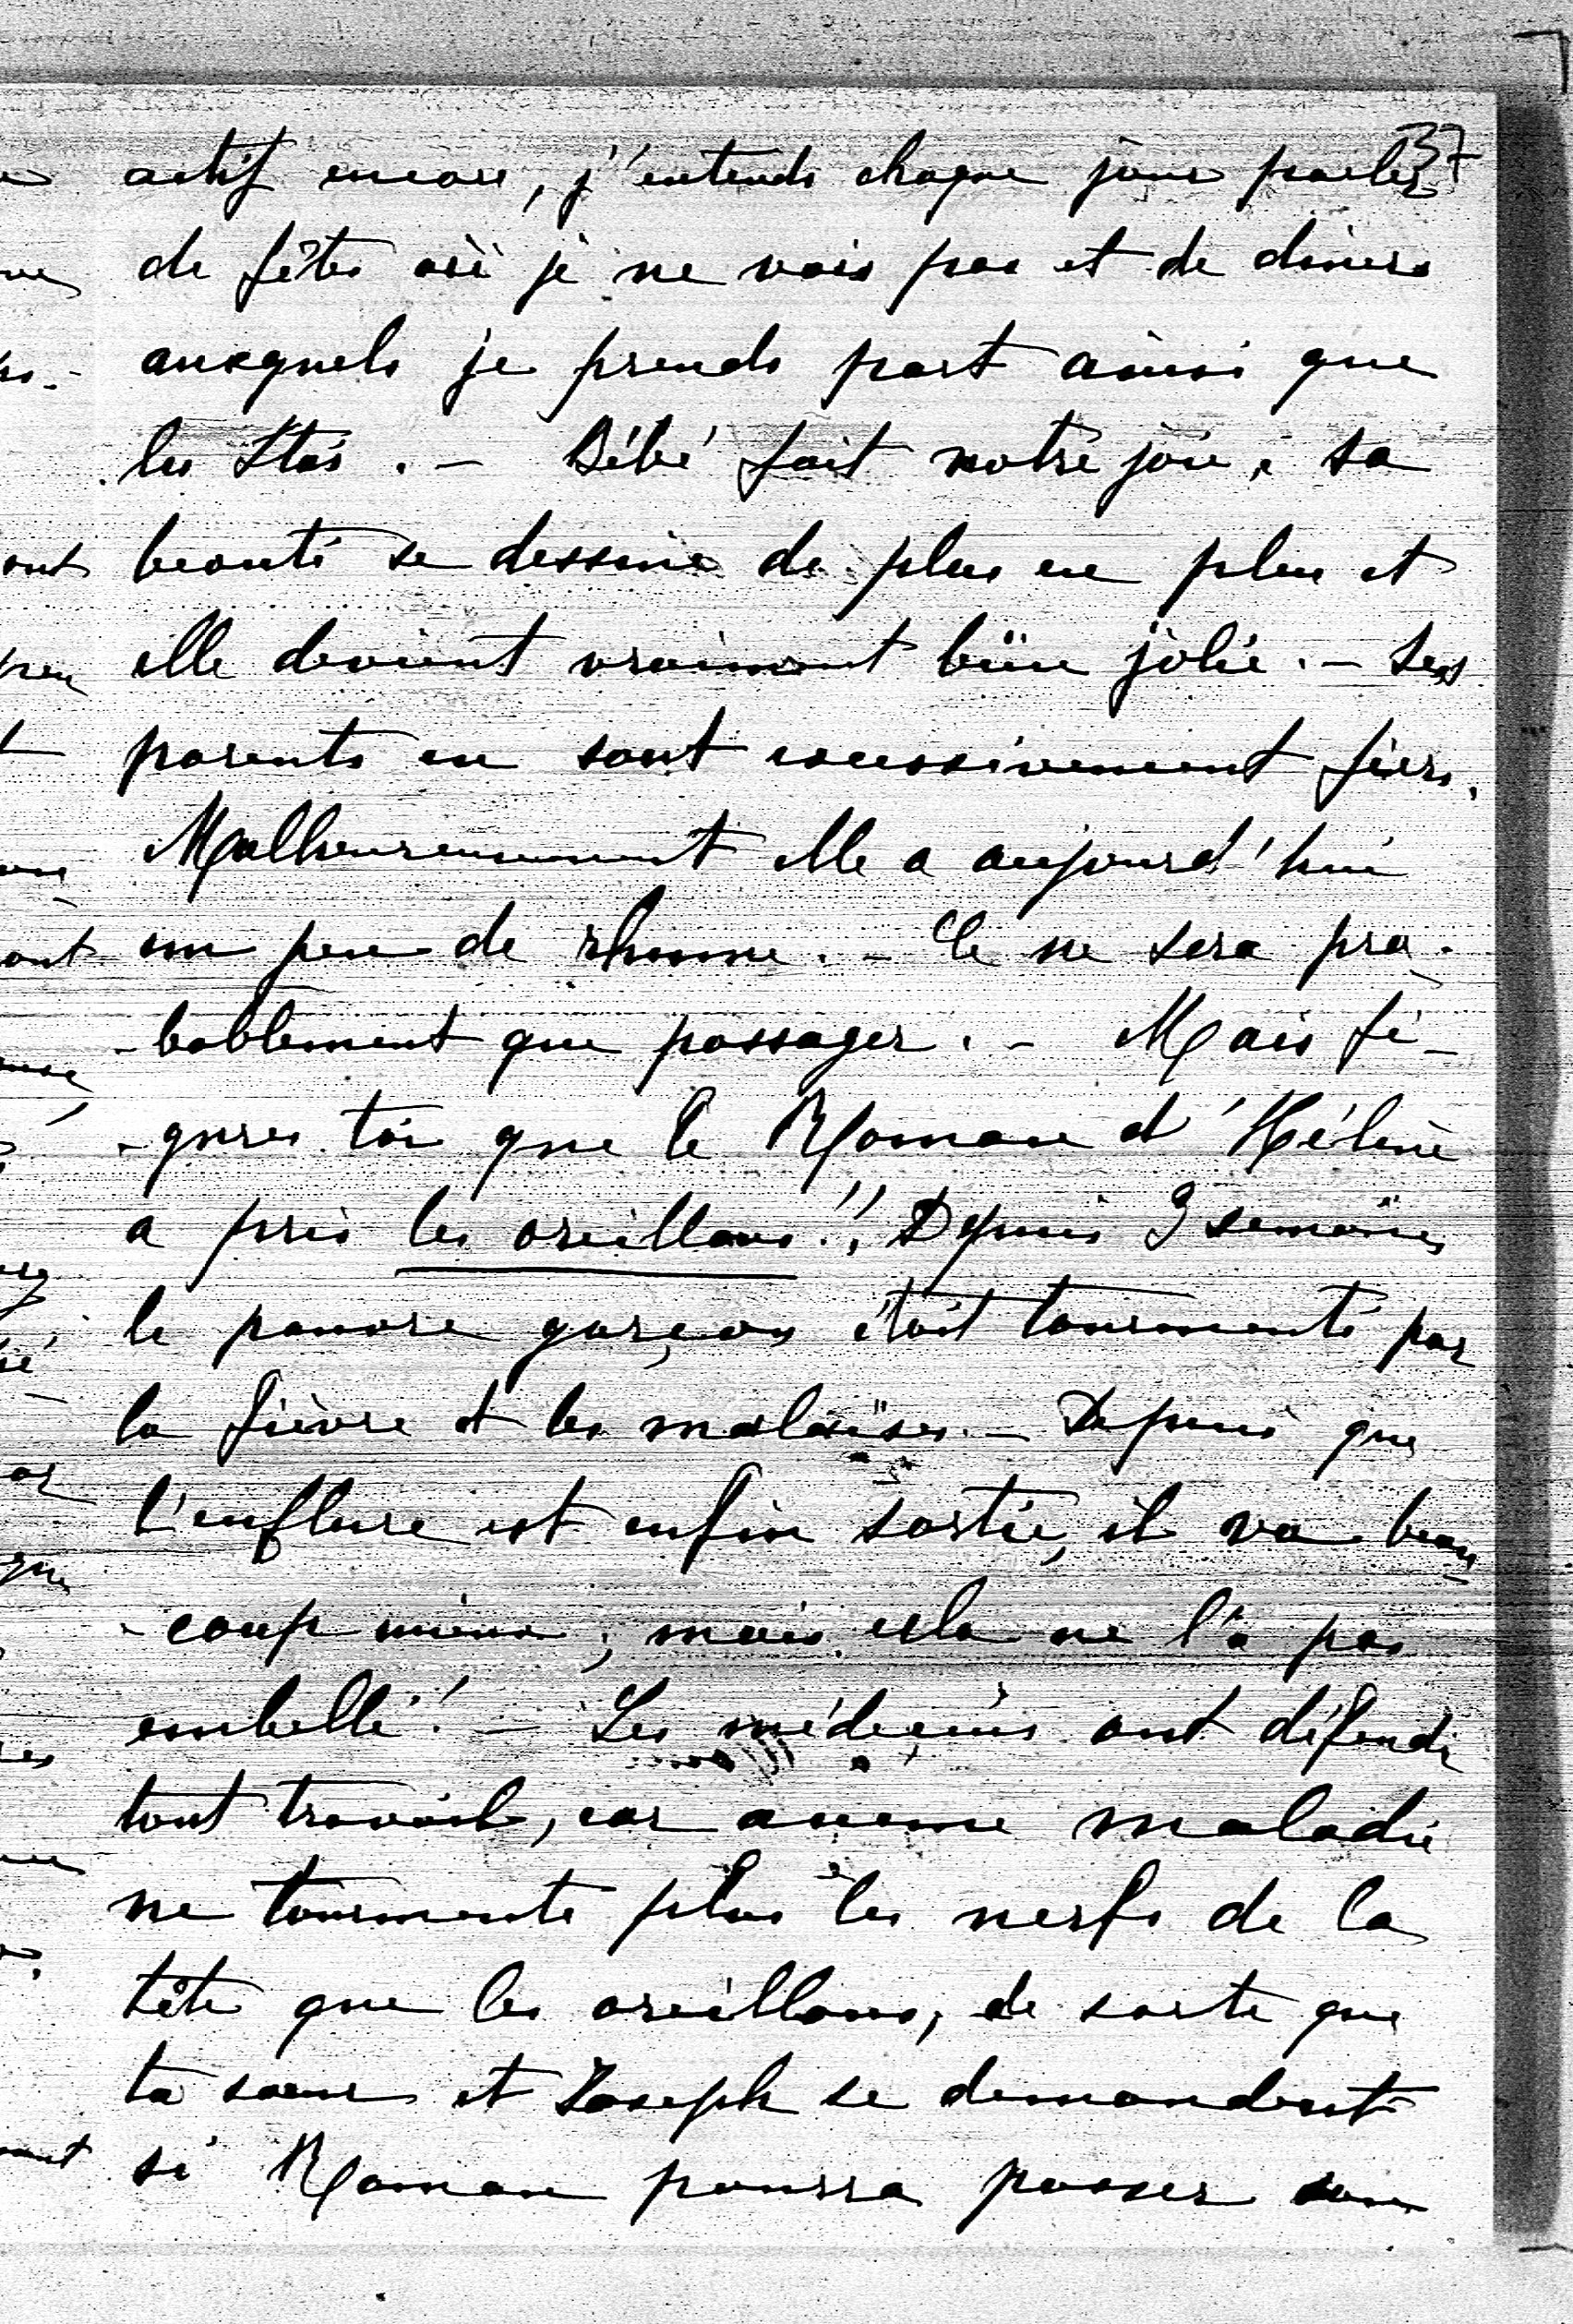 37
actif encore, j'entends chaque jour parler
de fêtes où je ne vais pas et de diners
auxquels je prends part ainsi que
les Stas. – Bébé fait notre joie, sa
beauté se dessine de plus en plus et
elle devient vraiment bien jolie. – Ses
parents en sont excessivement fiers.
Malheureusement elle a aujourd'hui
un peu de rhume. – Ce ne sera pro-
-bablement que passager. – Mais fi-
-gures toi que le Roman d'Hélène
a pris les oreillons!! Depuis 3 semaines
le pauvre garçon était tourmenté par
la fièvre et les malaises. – Depuis que
l'enflure est enfin sortie, il va beau-
-coup mieux; mais cela ne l'a pas
embelli! – Les médecins ont défendu
tout travail, car aucune maladie
ne tourmente plus les nerfs de la
tête que les oreillons, de sorte que
ta sœur et Joseph se demandent
si Roman pourra passer son